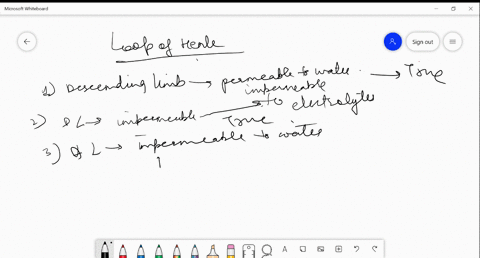 Microsoft Whiteboard
Sign out
Loop of Henle
1) Descending limb → permeable to water. → True
2) DL → impermeable → impermeable to electrolytes
True
3) DL → impermeable to water